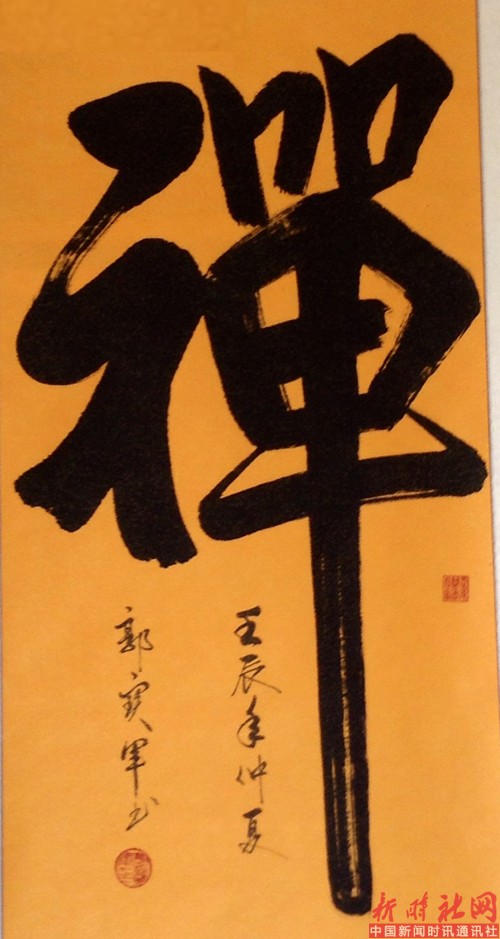 禪
壬辰年仲夏
郭寶軍书
新时社网
中国新闻时讯通讯社